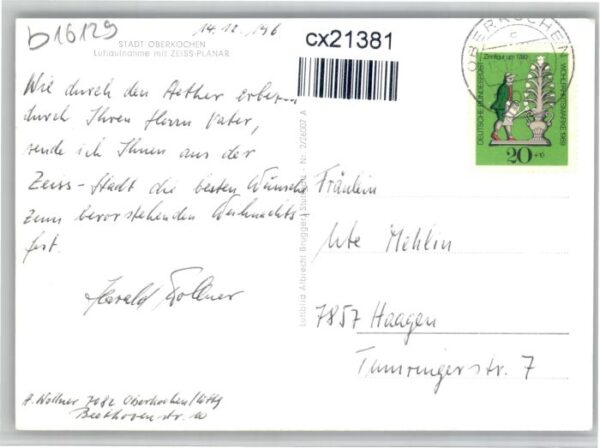 b16129
14.12.196
cx21381
STADT OBERKOCHEN
Luftaufnahme mit ZEISS-PLANAR
OBERKOCHEN
Zinnfigur um 1780
DEUTSCHE BUNDESPOST
WOHLFAHRTSMARKE 1969
20+10
Wie durch den Aether erbeten
durch Ihren Herrn Vater,
sende ich Ihnen aus der
Zeiss-Stadt die besten Wünsche
zum bevorstehenden Weihnachts
fest.
Harald Wollner
A. Wollner 7082 Oberkochen/Wttg
Beethoven-str. 10
Luftbild Albrecht Brugger, Stuttgart - Nr. 2/26007 A
Fräulein
Ute Mehlin
7857 Haagen
Tumringerstr. 7